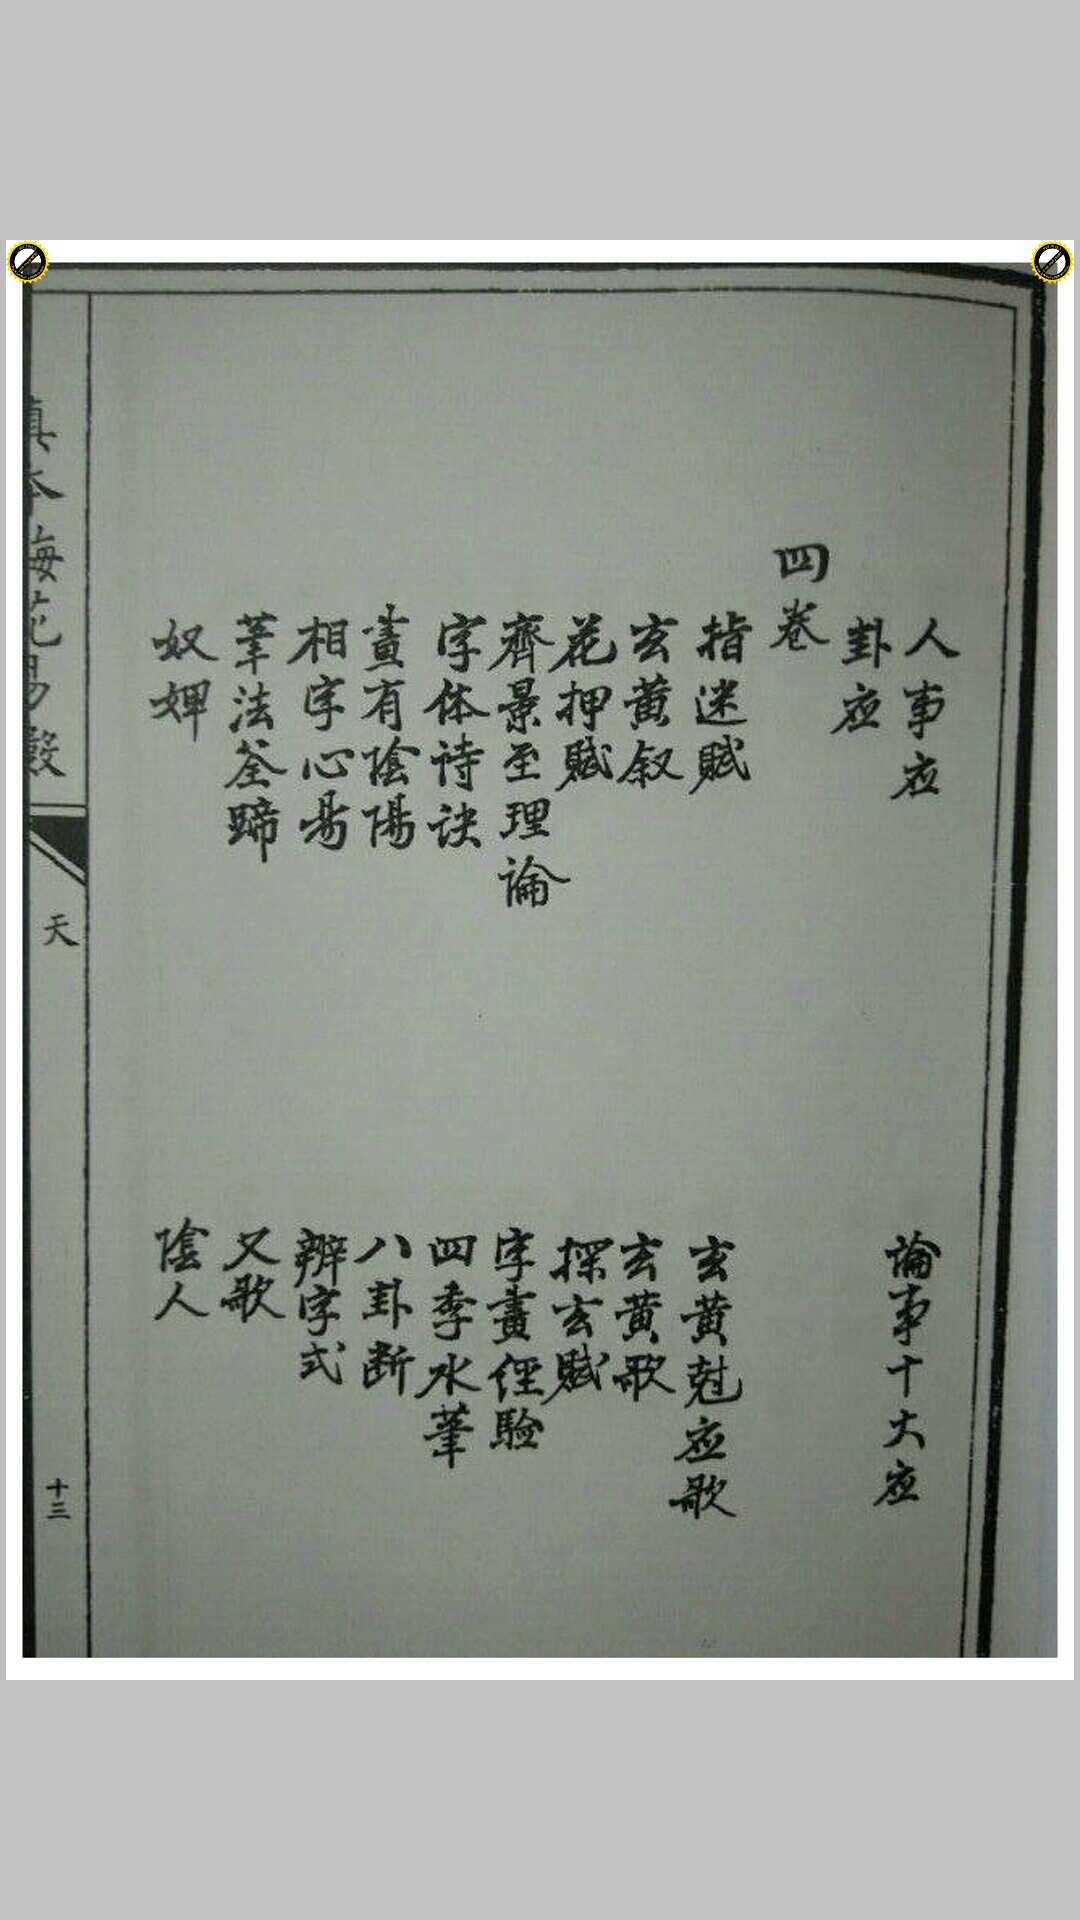 人事应
論事十大应
卦应
四卷
指迷賦
玄黄尅应歌
玄黄叙
玄黄歌
花押賦
探玄賦
齊景至理論
字畫經驗
字体诗诀
四季水筆
畫有陰陽
八卦断
相字心昜
辨字式
筆法荃蹄
又歌
奴婢
陰人
真本梅花易數
天
十三